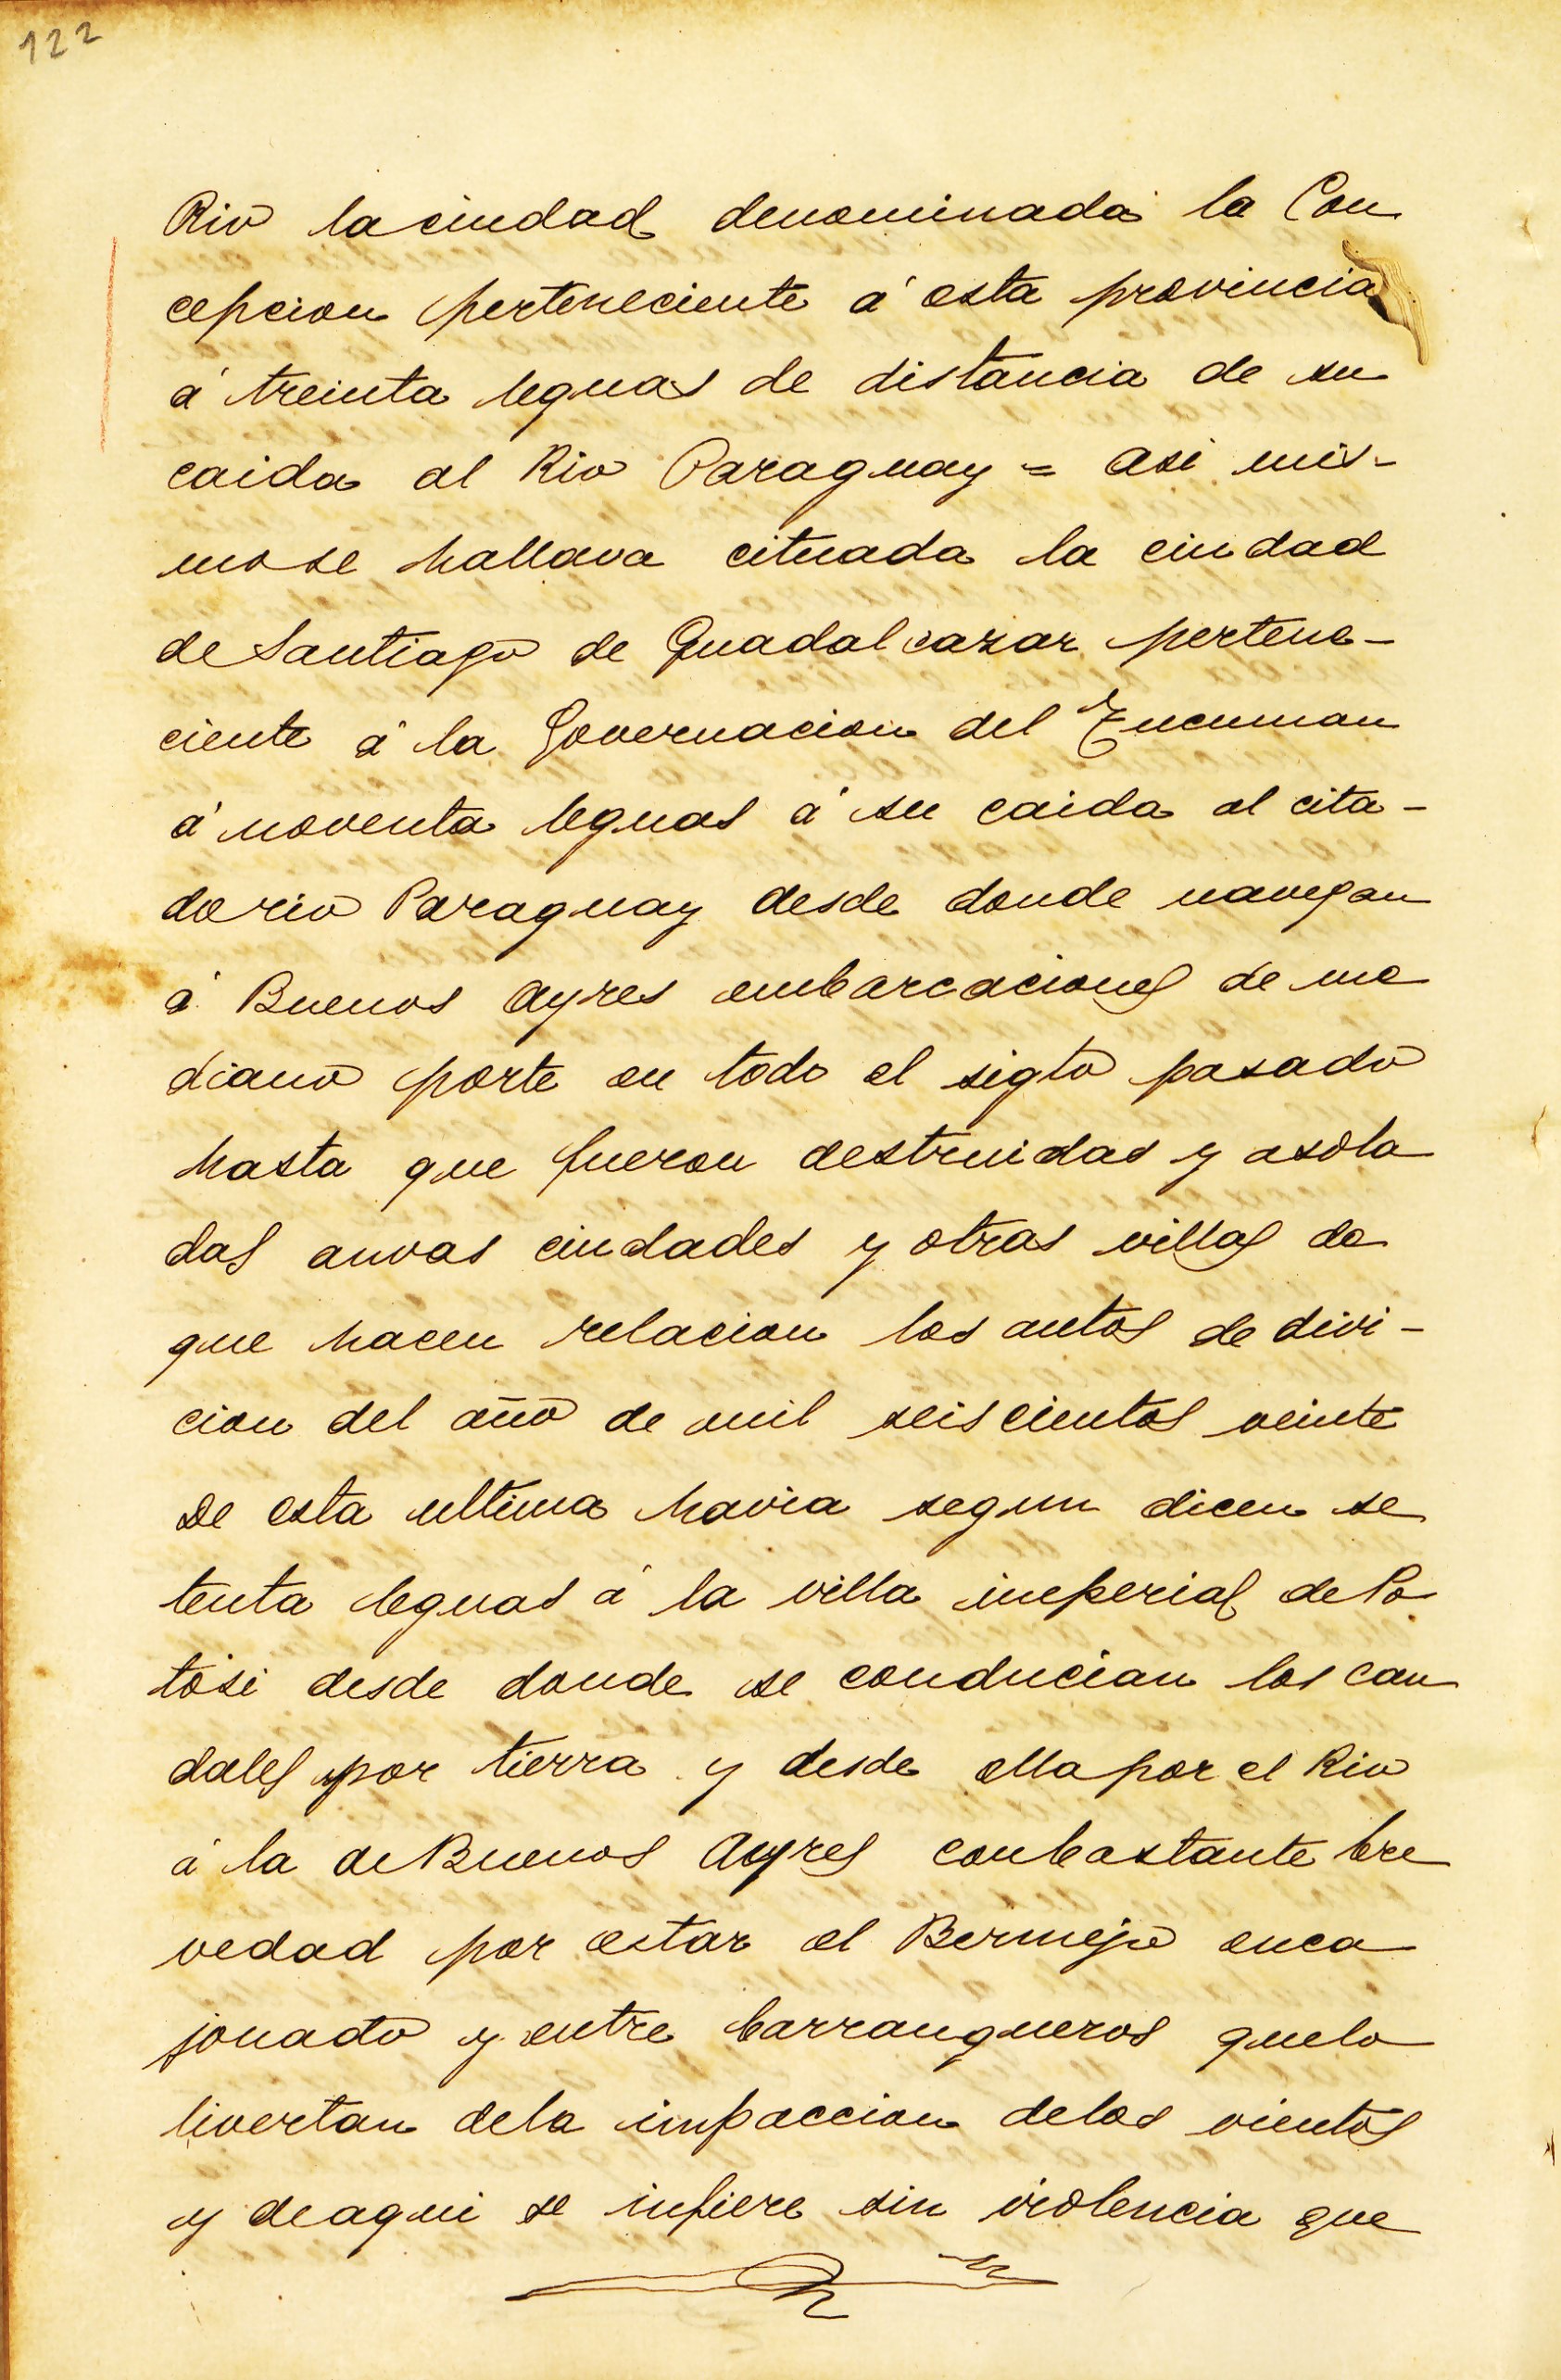 122
Rio la ciudad denominada la Con
cepcion perteneciente á esta provincia
á treinta leguas de distancia de su
caida al Rio Paraguay = asi mis-
mo se hallava cituada la ciudad
de Santiago de Guadalcazar pertene-
ciente á la Governacion del Tucuman
á noventa leguas á su caida al cita-
do rio Paraguay desde donde navegan
á Buenos Ayres embarcaciones de me
diano porte en todo el siglo pasado
hasta que fueron destruidas y asola
das anvas ciudades y otras villas de
que hacen relacion los autos de divi-
cion del año de mil seiscientos veinte
De esta ultima havia segun dicen se
tenta leguas á la villa imperial de Po
tosi desde donde se conducian los cau
dales por tierra y desde ella por el Rio
á la de Buenos Ayres con bastante bre
vedad por estar el Bermejo enca
jonado y entre barranqueros que lo
livertan de la impaccion de los vientos
y de aqui se infiere sin violencia que